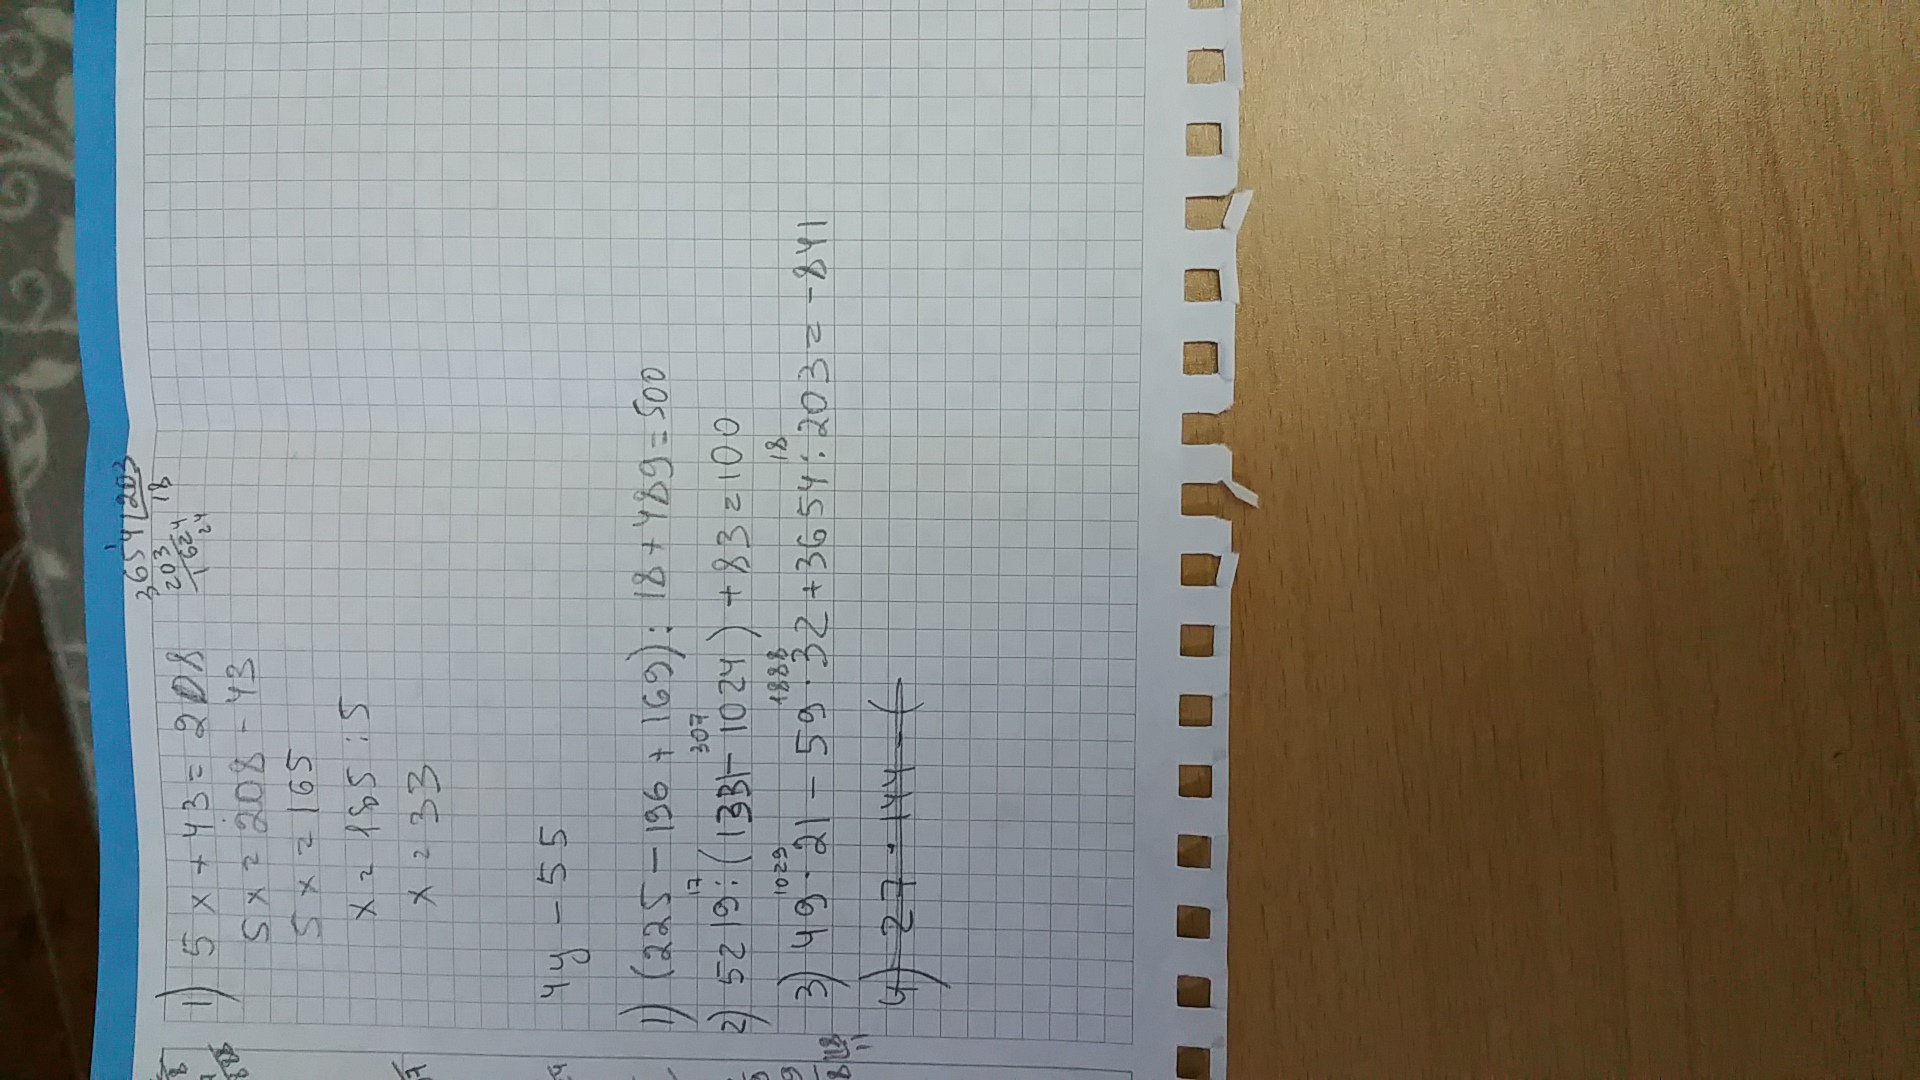 3654 203
203 18
1624
24
1) 5x + 43 = 208
5x = 208 - 43
5x = 165
x = 165 : 5
x = 33
4y - 55
1) (225 - 196 + 169) : 18 + 489 = 500
17 307
2) 5219 : (1331 - 1024) + 83 = 100
1029 1888 18
3) 49 · 21 - 59 · 32 + 3654 : 203 = -841
4) 27 · 144 - (